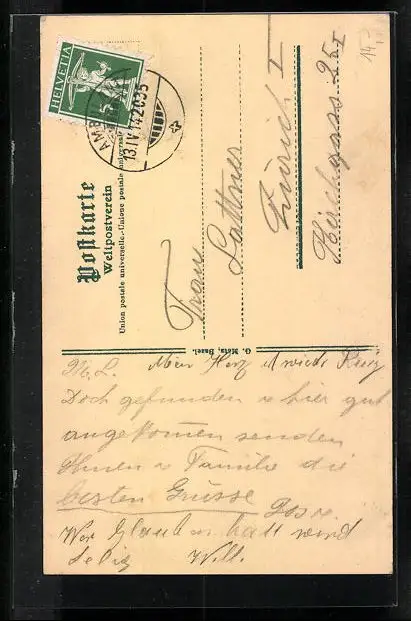 HELVETIA
5
13.IV.14.20 35
Postkarte
Weltpostverein
Union postale universelle.-Unione postale universale
Frau
Lattner
Zürich I
Kirchgass 25 I
14.
G. Metz, Basel.
M. L. Mein Herz ist wieder
Doch gefunden & hier gut
angekommen senden
Ihnen & Familie die
besten Grüsse
Wer Glauben hatt wird
selig Will.